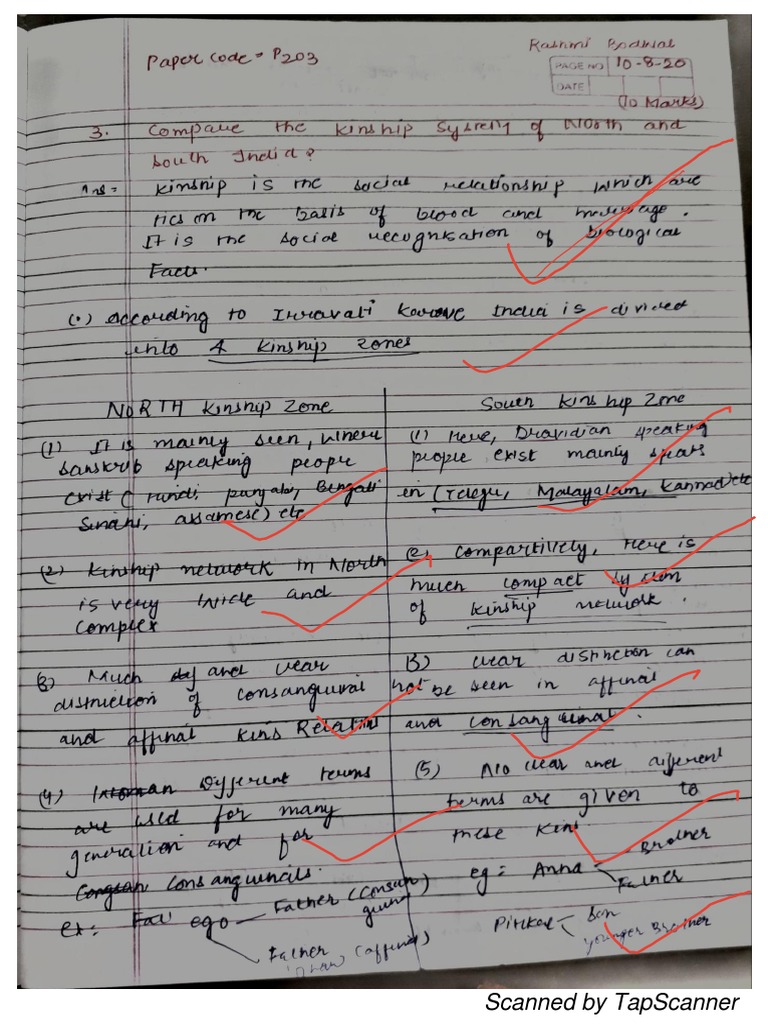 Paper code = P203
Rashmi
PAGE NO
10-8-20
DATE
(10 Marks)
3. Compare the kinship system of North and
South India?
Ans = Kinship is the social relationship which are
ties on the basis of blood and marriage.
It is the social recognisation of biological
Facts.
(•) According to Irravati Karve India is divided
into 4 kinship zones
NORTH Kinship Zone
(1) It is mainly seen, where
Sanskrit speaking people
exist (Hindi, punjabi, Bengali
Sindhi, assamese) etc
(2) Kinship network in North
is very wide and
complex
(3) Much and clear
distinction of consanguinal
and affinal kins Relation
(4) Different terms
are used for many
generation and for
Consanguineals.
ex: ego Father (Consan
guineal
Father
(affinal)
South Kinship Zone
(1) Here, Dravidian speaking
people exist mainly speaks
in (Telegu, Malayalam, Kannad) etc
(2) Compartively, Here is
much compact system
of kinship network.
(3) clear distinction can
not be seen in affinal
and consanguineal.
(5) No clear and different
terms are given to
these kins
eg: Anna Brother
Father
Son
younger Brother
Scanned by TapScanner